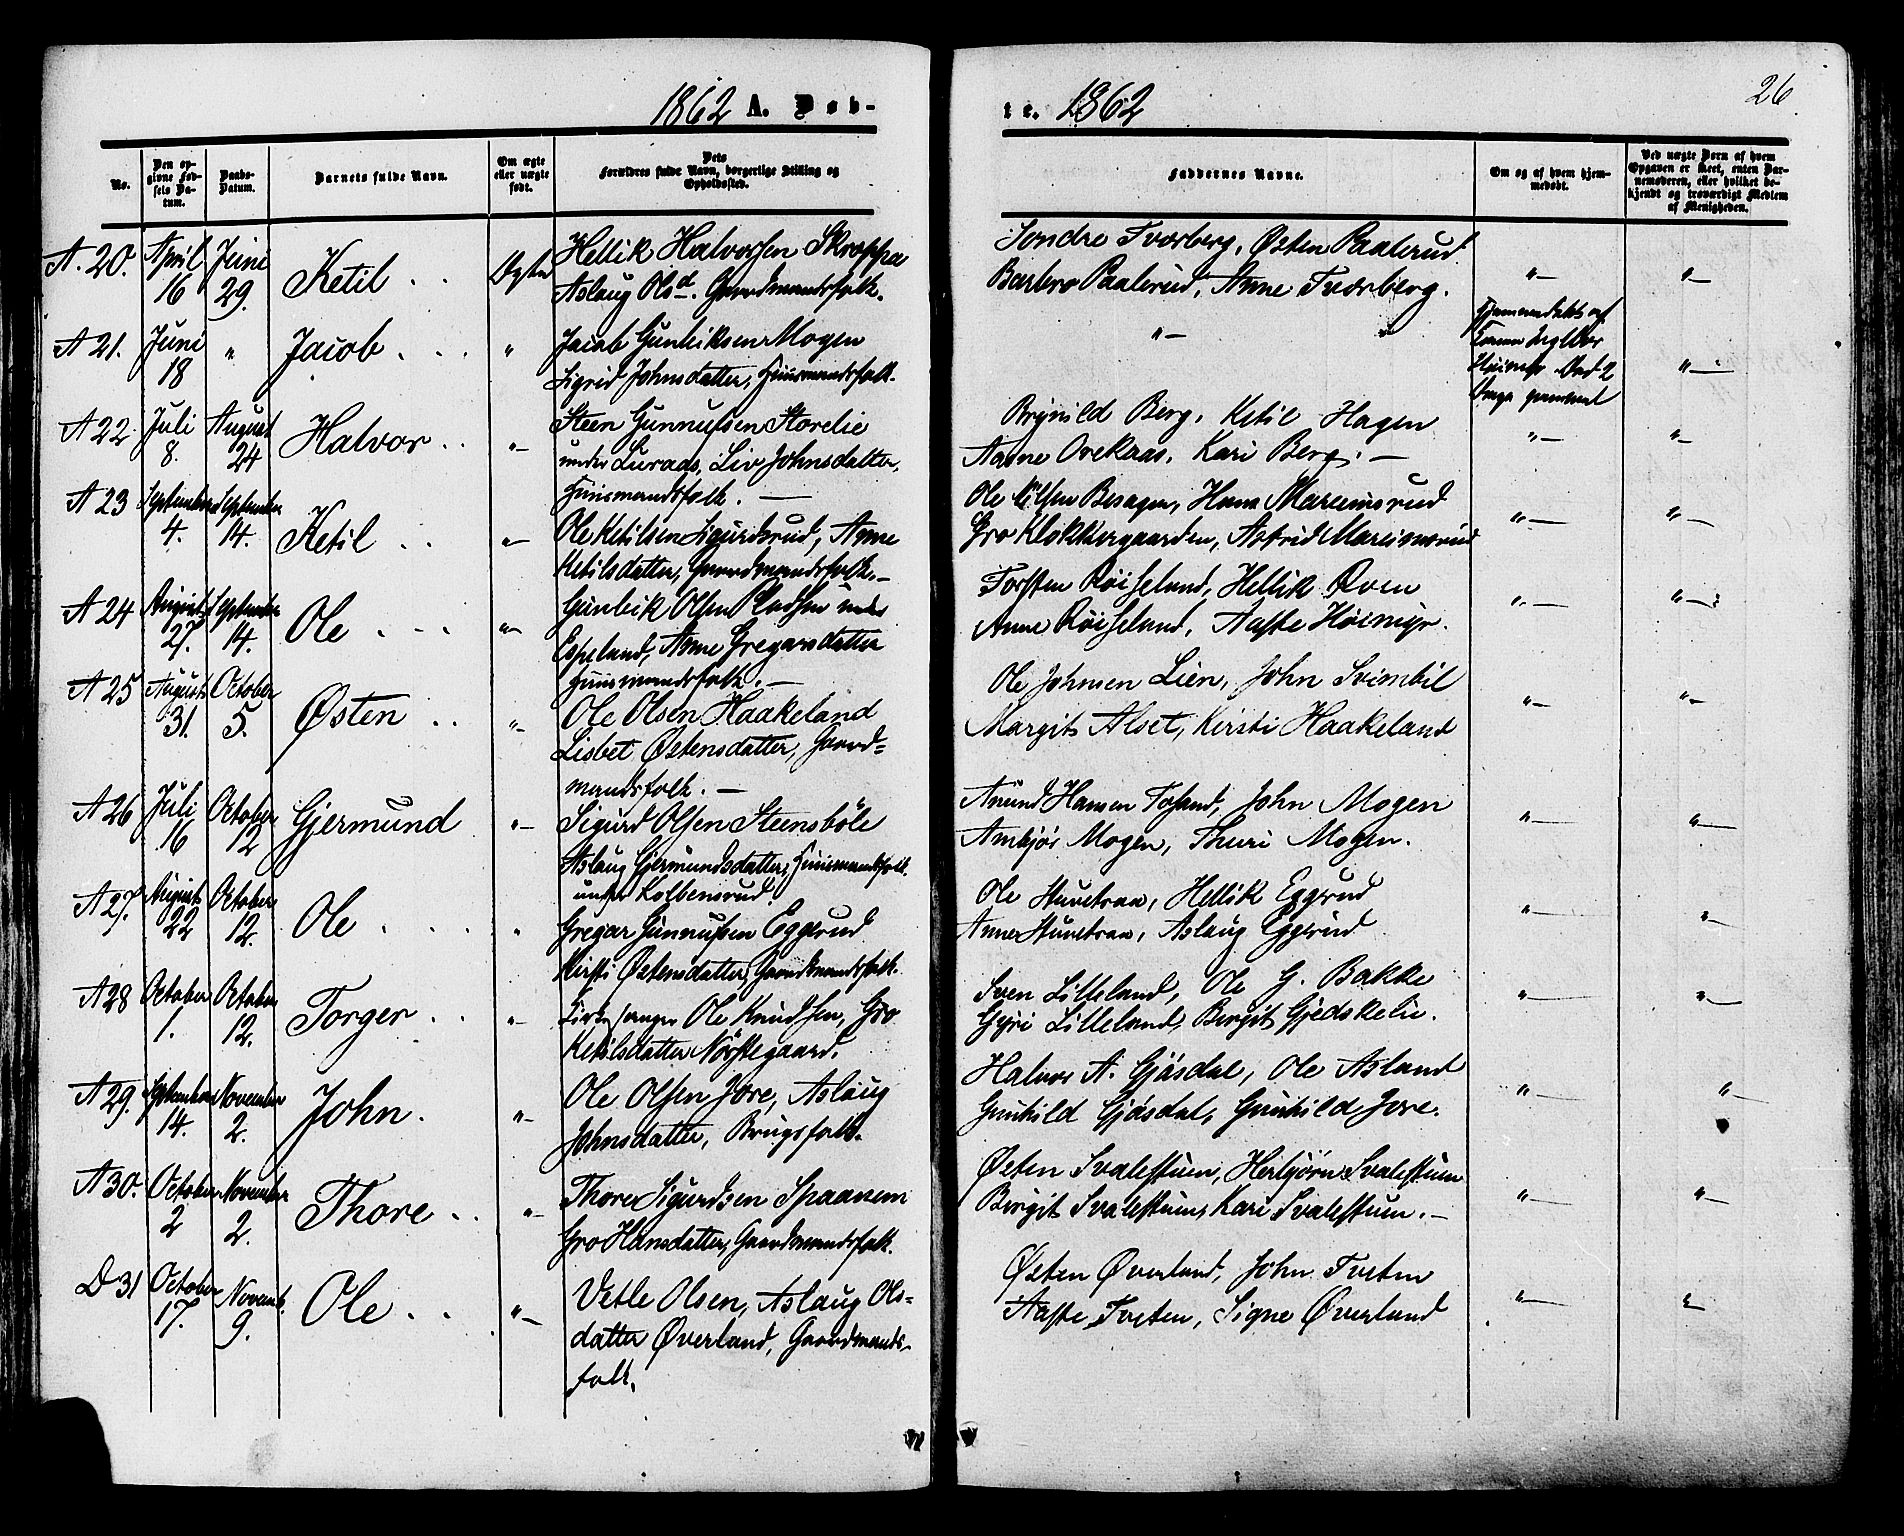 1862 A. Døb-
No.
Den opgivne Fødsels Datum.
Daabs-Datum.
Barnets fulde Navn.
Om ægte eller uægte født.
Dets Forældres fulde Navn, borgerlige Stilling og Opholdssted.
A. 20. April 16 Juni 29. Ketil Ægte
Hellik Halvorsen Skrøppa
Aslaug Olsd. Gaardmandsfolk.
A 21. Juni 18 " Jacob "
Jacob Gunleiksen Mogen
Sigrid Johnsdatter, Huusmandsfolk.
A 22. Juli 8. August 24 Halvor "-
Steen Gunnufsen Storelie
under Luraas, Liv Johnsdatter,
Huusmandsfolk. -
A 23 September 4. September 14. Ketil "-
Ole Ketilsen Sigurdsrud, Anne
Ketilsdatter, Gaardmandsfolk. -
A 24 August 27. September 14. Ole "-
Gunleik Olsen Pladsen under
Espeland, Anne Gregarsdatter
Huusmandsfolk. -
A 25 August 31. October 5. Østen "-
Ole Olsen Haakeland
Lisbet Østensdatter, Gaard=
mandsfolk. -
A 26 Juli 16 October 12 Gjermund "-
Sigurd Olsen Steensböle
Aslaug Gjermundsdatter, Huusmandsfolk
under Kolbensrud.
A 27. August 22 October 12. Ole "
Gregar Gunnufsen Eggerud
Kirsti Østensdatter, Gaardmandsfolk.
A 28 October 1. October 12. Torger "-
Kirkesanger Ole Knudsen, Gro
Ketilsdatter Nørstegaard.
A 29. September 14. November 2. John. "-
Ole Olsen Jore, Aslaug
Johnsdatter, Brugsfolk.
A 30. October 2 November 2. Thore "-
Thore Sigurdsen Spaanem
Gro Hansdatter, Gaardmandsfolk.
D 31 October 17. Novemb. 9. Ole "-
Vetle Olsen, Aslaug Ols=
datter Øverland, Gaardmands-
folk.
te. 1862
26
Faddernes Navne.
Om og af hvem hjemmedøbt.
Ved uægte Børn af hvem Opgaven er skeet, enten Barnemoderen, eller hvilket bekjendt og troværdigt Medlem af Menigheden.
Sondre Tvorberg, Østen Paalerud
Barbro Paalerud, Anne Tvorberg. "- "-
"- Hjemmedøbt af
"-
Brynild Berg, Ketil Hagen
Aasne Ovekaas, Kari Berg. - "- "-
Ole Besagen, Hans Mareimsrud
Gro Klokkergaarden, Astrid Mareimsrud "- "-
Torsten Røiseland, Hellik Øven
Anne Røiseland, Aaste Høimyr. "- "-
Ole Johnsen Lien, John Svimbil
Margit Alset, Kirsti Haakeland "- "-
Anund Hansen Tosand, John Mogen
Ambjør Mogen, Thuri Mogen. "- "-
Ole Stuvetraa, Hellik Eggrud
Anne Stuvetraa, Aslaug Eggerud "- "-
Sven Lilleland, Ole G. Bakke
Gyri Lilleland, Bergit Gjedskelie. "- "-
Halvor A. Gjøsdal, Ole Asland
Gunhild Gjøsdal, Gunhild Jore. "- "-
Østen Svalestuen, Herbjørn Svalestuen
Birgit Svalestuen, Kari Svalestuen. - "- "-
Østen Øverland, John Tveten
Aaste Tveten, Signe Øverland "- "-